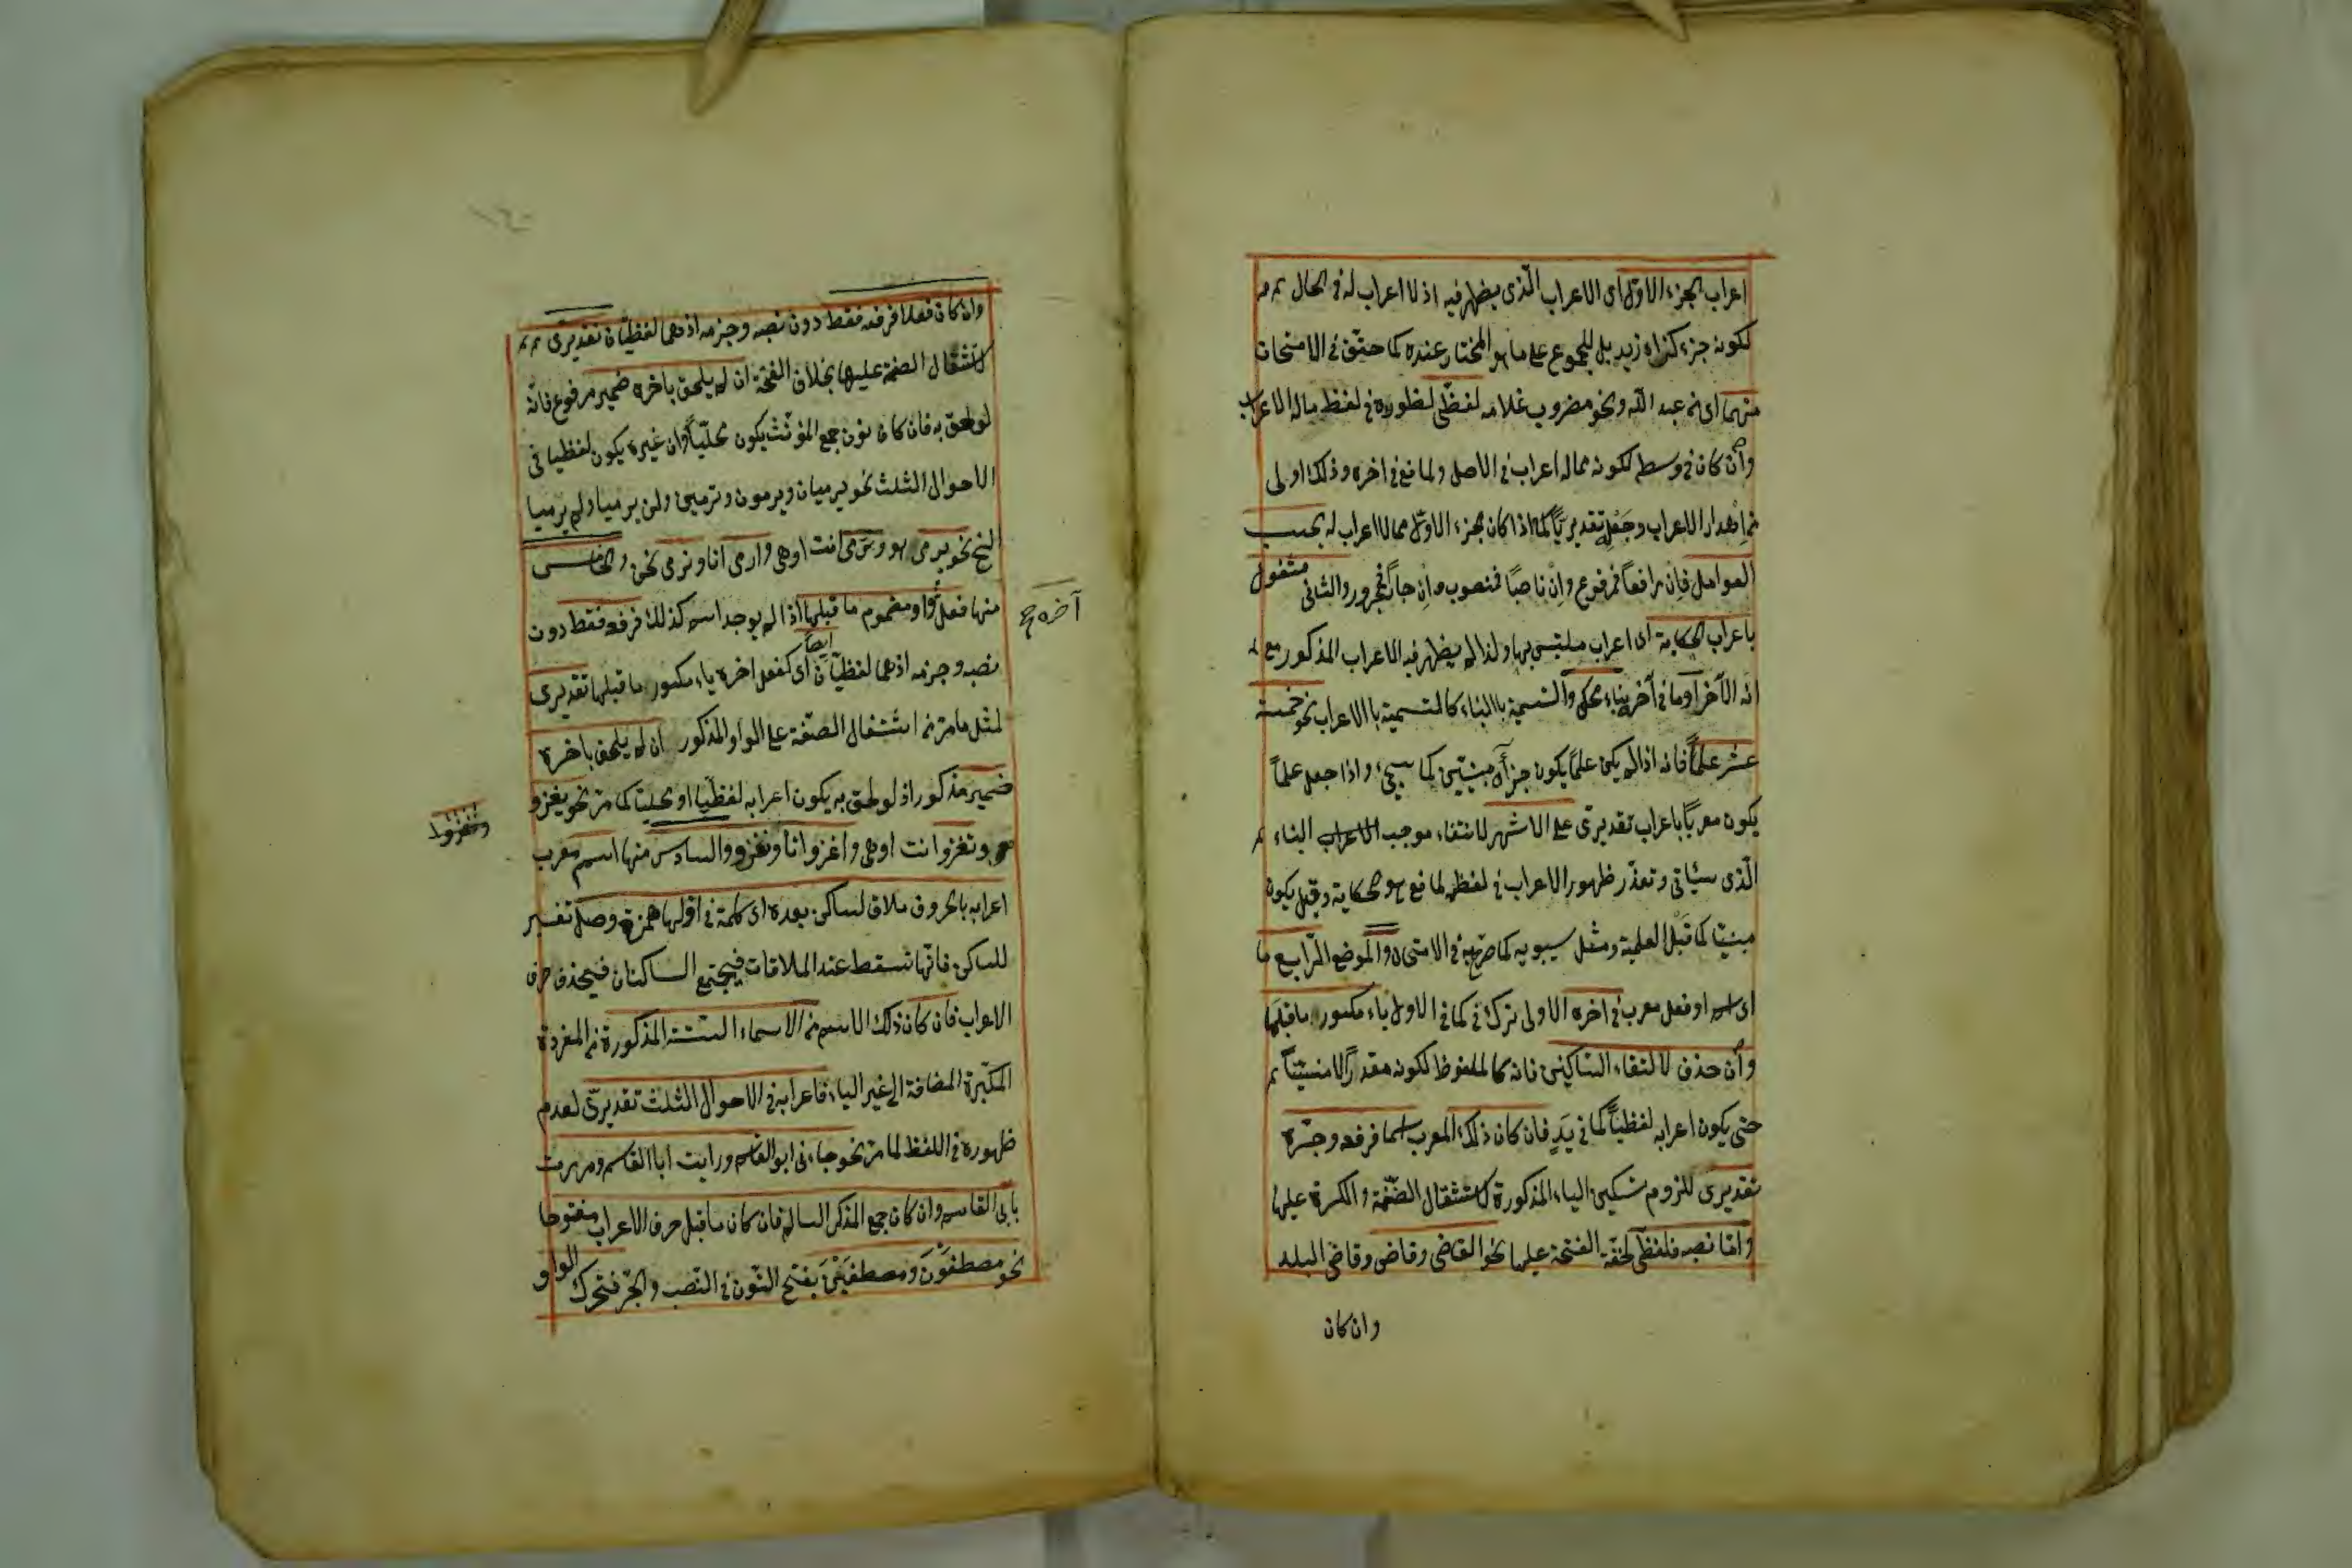 اعراب الجزء الاوّل اى الاعراب الّذى يظهر فيه اذ لا اعراب له فى الحال
لكونه جزء كزاء زيد بل للمجموع على ما هو المختار عنده كما حقّق فى الامتحان
منهما اى من عبد الله ونحو مضروب غلامه لفظىّ لظهوره فى لفظ ماله الاعراب
وان كان فى وسط لكونه مماله اعراب فى الاصل ولمانع فى اخره وذلك اولى
من اهدار الاعراب وجعله تقديريّاً كما اذا كان الجزء الاوّل مما لا اعراب له بحسب
العوامل فان رافعاً فمرفوع وان ناصبًا فمنصوب وان جارّاً فمجرور والثانى مشغول
باعراب الحكاية اى اعراب ملتبس بها ولذا لم يظهر فيه الاعراب المذكور مع
انه الآخر او ما فى آخره بناء محكى والتسمية باالبناء كالتسمية باالاعراب نحو خمسة
عشر علماً فانه اذا لم يكن علماً يكون جزآه مبنيّين كما سيجئ واذا جعل علماً
يكون معربًا باعراب تقديرىّ على الاشهر لانتفاء موجب الاعراب البناء
الّذى سيأتى وتعذّر ظهور الاعراب فى لفظه لمانع هو الحكاية وقيل يكون
مبنيّا كما قبل العلمية ومثل سيبويه كما صرّح به فى الامتحان والموضع الرّابع ما
اى اسم او فعل معرب فى اخره الاولى ترك فى كما فى الاول ياء مكسور ما قبلها
وان حذف لالتقاء السّاكنين فانه كالملفوظ لكونه مقدرًا لا منسيّاً
حتى يكون اعرابه لفظيّاً كما فى يَدٍ فان كان ذلك المعرب اسما فرفعه وجرّه
تقديرى للزوم تسكين الياء المذكورة لاستثقال الضّمّة والكسرة عليها
وامّا نصبه فلفظىّ لخفّة الفتحة عليها نحو القاضى وقاض وقاضى البلد
وان كان
وان كان فعلا فرفعه فقط دون نصبه وجزمه اذ هما لفظيّان تقديرى
لاستثقال الضمّة عليها بخلاف الفتحة ان لم يلحق باخره ضمير مرفوع فانه
لو لحق به فان كان نون جمع المؤنّث يكون محلّيّاً وان غيره يكون لفظيا فى
الاحوال الثلث نحو يرميان ويرمون وترمين ولن يرميا ولم يرميا
الخ نحو يرمى هو وترمى انت او هى وارمى انا ونرمى نحن والخامس
منها فعل واو مضموم ما قبلها اذا لم يوجد اسم كذلك فرفعه فقط دون
آخره صح
نصبه وجزمه اذ هما لفظيّان ايضاً اى كفعل اخره ياء مكسور ما قبلها تقديرى
لمثل ما مرّ من استثقال الضمّة على الواو المذكور ان لم يلحق باخره
ضمير مذكور اذ لو لحق به يكون اعرابه لفظيّا او محليّا كما مرّ نحو يغزو
هو وتغزو انت او هى واغزو انا ونغزو والسادس منها اسم معرب
اعرابه بالحروف ملاق لساكن بعده اى كلمة فى اوّلها همزة وصل تفسير
للساكن فانّها تسقط عند الملاقات فيجتمع الساكنان فيحذف حرف
الاعراب فان كان ذلك الاسم من الاسماء الستّة المذكورة من المفردة
المكبّرة المضافة الى غير الياء فاعرابه فى الاحوال الثلث تقديرىّ لعدم
ظهوره فى اللفظ لما مرّ نحو جاءنى ابو القاسم ورايت ابا القاسم ومررت
بابى القاسم وان كان جمع المذكر السالم فان كان ما قبل حرف الاعراب مفتوحا
نحو مصطفَوْنَ ومصطفَيْنَ بفتح النّون فى النّصب والجرّ فتحرك الواو